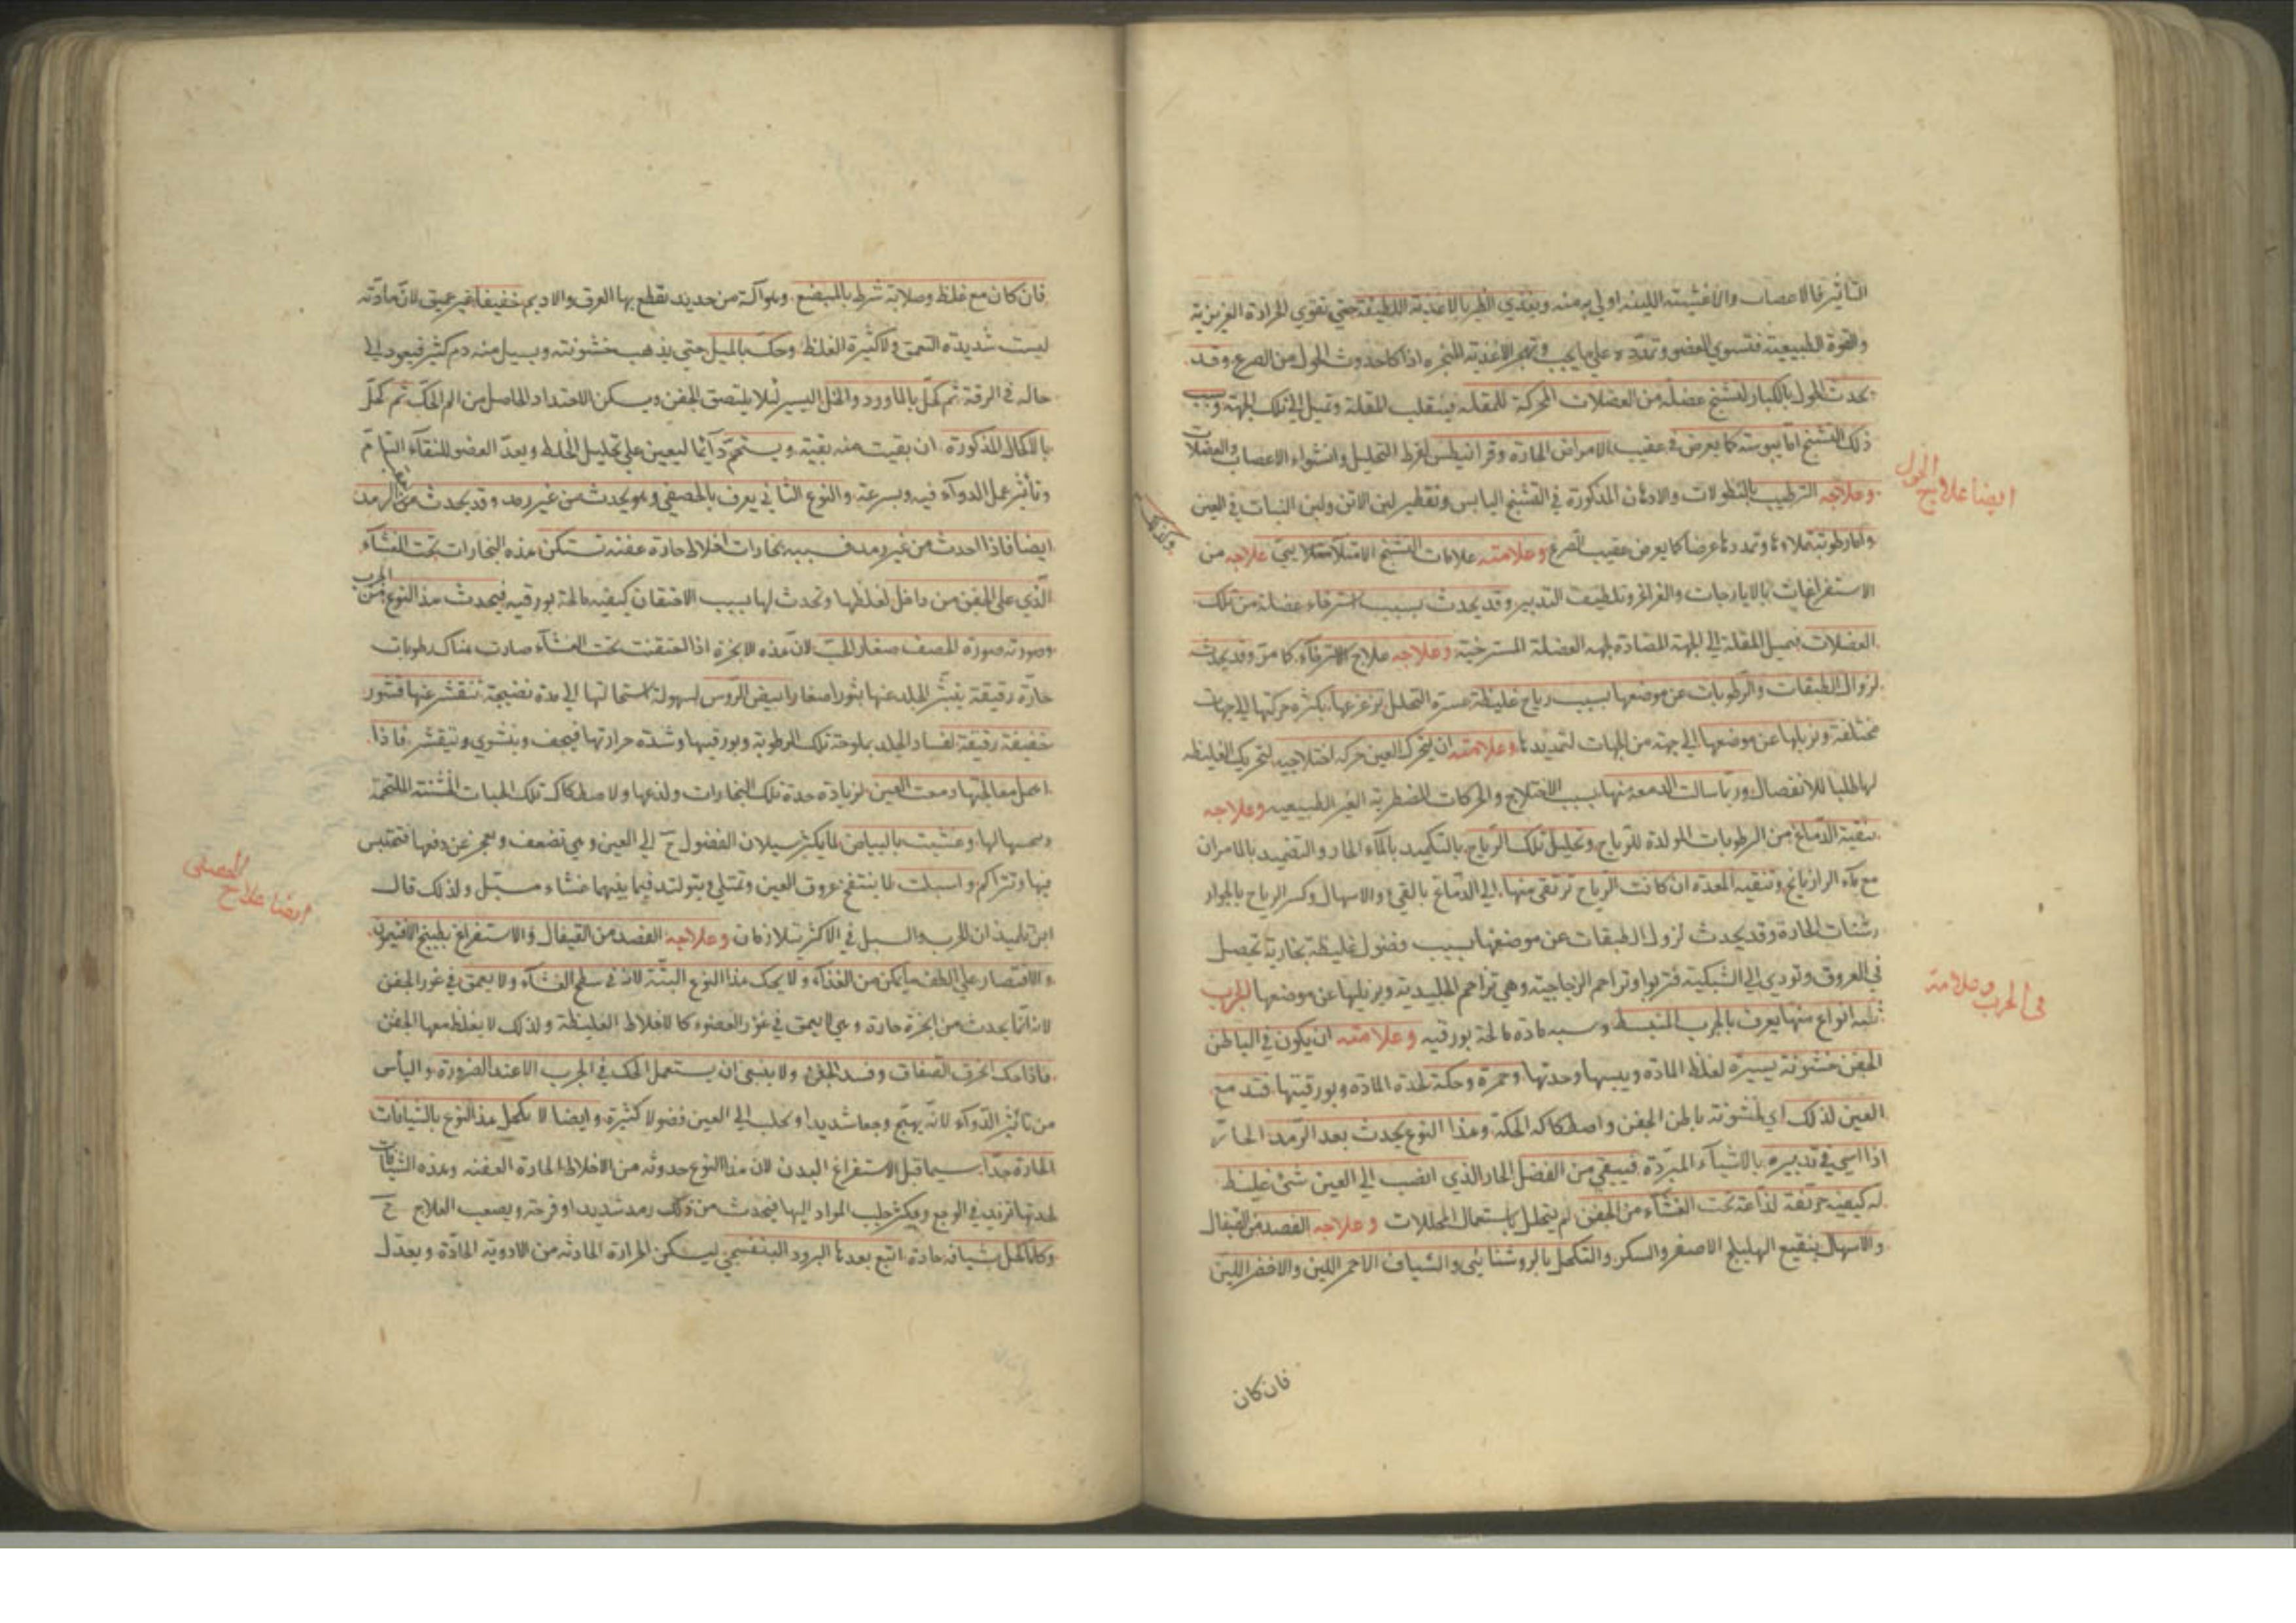 التأثير فالاعصاب والاغشيته اللينه اولى به منه ويغذي الظير بالاغذية اللطيفة حتى تقوي الحرارة الغريزية
والقوة الطبيعية فتسوي العضو وتمدده على ما يجب وتهجر الاغذية المبخره اذا كا حدوث الحول من الصرع وقد
يحدث الحول بالكبار لتشنج عضلة من العضلات المحركة للمقله فينقلب المقلة وتميل الى تلك الجهة وسبب
ذلك التشنج اما يبوسته كما يعرض في عقيب الامراض الحادة وقرانيطس لفرط التحليل وانشواء الاعصاب والعضلات
وعلاجه الترطيب بالنطولات والادهان المذكورة في التشنج اليابس وتقطير لبن الاتن ولبن النبات في العين
واما رطوبته تملاءها وتمددها عرضا كما يعرض عقيب الصرع وعلامته علامات التشنج الامتلاء علاجه من
الاستفراغات بالايارجات والغراغر وتلطيف التدبير وقد يحدث بسبب استرخاء عضلة من تلك
العضلات فيميل المقلة الى الجهة المضادة لجهه العضلة المسترخية وعلاجه علاج الاسترخاء كما مر وقد يحدث
لزوال الطبقات والرطوبات عن موضعها بسبب رياح غليظة عسرة التحلل تزعزعها بكثره حركتها الى جهات
مختلفة وتزيلها عن موضعها الى جهة من الجهات لتمديدها وعلامته ان يتحرك العين حركه اختلاجيه لتحريك الغليظه
لها طلبا للانفصال وربما سالت الدمعه منها بسبب الاختلاج والحركات المضطربة الغير الطبيعيه وعلاجه
تنقية الدماغ من الرطوبات المولدة للرياح وتحليل تلك الرياح بالتكميد بالماء الحار والتضميد بالمامران
مع ماء الرازيانج وتنقيه المعده ان كانت الرياح ترتقى منها الى الدماغ بالقيء والاسهال وكسر الرياح بالجوار
رشنات الحادة وقد يحدث لزوال الطبقات عن موضعها بسبب فضول غليظة بخارية تحصل
في العروق وتودي الى الشبكية فتربوا وتراحم الزجاجية وهي تزاحم الجليدية ويزيلها عن موضعها الجرب
ثلثه انواع منها يعرف بالجرب المنبسط وسببه مادة مالحة بورقيه وعلامته ان يكون في الباطن
الجفن خشونة يسيرة لغلظ المادة ويبسها وحدتها وحمرة وحكة لحدة المادة وبورقيتها فتدمع
العين لذلك اي لخشونة باطن الجفن واصطكاكه الحكة وهذا النوع يحدث بعد الرمد الحار
اذا اسي في تدبيره بالاشياء المبردة فيبقى من الفضل الحار الذي انصب الى العين شئ غليظ
له كيفيه حريفة لذاعة تحت الغشاء من الجفن لم يتحلل باستعمال المحللات وعلاجه الفصد من القيفال
والاسهال بنقيع الهليلج الاصفر والسكر والتكحل بالروشنائى والشياف الاحمر اللين والاخضر اللين
فان كان
ولذلك
ايضا علاج الحول
فى الجرب وعلامة
فان كان مع غلظ وصلابة شرط بالمبضع وهو آلة من حديد يقطع بها العرق والاديم خفيفا غير عميق لان مادته
ليست شديدة التعمق ولا كثيرة الغلظ وحك بالميل حتى يذهب خشونته ويسيل منه دم كثير فيعود الى
حاله في الرقة ثم كحل بالماورد والخل اليسير لئلا يلتصق الجفن ويسكن الاحتداد الحاصل من الم الحك ثم كحل
بالاكحال المذكورة ان بقيت منه بقية ويستحم دآئما ليعين على تحليل الخلط ويعد العضو للنقاء التام
وتأثير عمل الدواء فيه وبسرعة والنوع الثاني يعرف بالحصفي وهو يحدث من غير رمد وقد يحدث من الرمد
ايضا فاذا احدث من غير رمد فسببه بخارات اخلاط حادة عفنة تستكن هذه البخارات تحت الغشاء
الذي على الجفن من داخل لغلظها وتحدث لها بسبب الاحتقان كيفيه مالحة بورقيه فيحدث هذا النوع من الجرب
وصورته صورة الحصف صغار الحب لان هذه الابخرة اذا احتقنت تحت الغشاء صارت هناك رطوبات
حارة رقيقة يبثر الجلد عنها بثورا صغارا ابيض الروس لسهولة استحالتها الى مدة نضيجة تنقشر عنها قشور
خفيفة رقيقة لفساد الجلد بملوحة تلك الرطوبة وبورقيها وشدة حرارتها فيجف وينشوي ويتقشر فاذا
اهمل معالجتها دمعت العين لزيادة حدة تلك البخارات ولذعها ولاصطكاك تلك الحبات الخشنة الملتحمة
وغشيت بالبياض لما يكثر سيلان الفضول ح الى العين وهي تضعف وتعجز عن دفعها فتحتبس
فيها وتتراكم واسبلت لما ينتفخ عروق العين وتمتلئ ويتولد فيما بينهما غشاء مسبل ولذلك قال
ابن تلميذ ان الجرب والسبل في الاكثر يتلازمان وعلاجه الفصد من القيفال والاستفراغ بطبيخ الافتيمون
والاقتصار على الطف ما يمكن من الغذاء ولا يحك هذا النوع البتة لانه في سطح الغشاء ولا يعمق في غور الجفن
لانه انما يحدث من ابخرة حارة وهي لا يعمق في غور العضو كالاخلاط الغليظة ولذلك لا يغلظ معها الجفن
فاذا حك انخرق الصفاق وفسد الجفن ولا ينبغى ان يستعمل الحك في الجرب الا عند الضرورة والياس
من تاثير الدواء لانه يهيج وجعا شديدا ويجلب الى العين فضولا كثيرة وايضا لا يكحل هذا النوع بالشيافات
الحادة جدا سيما قبل الاستفراغ البدن لان هذا النوع حدوثه من الاخلاط الحادة العفنة وهذه الشيافات
لحدتها تزيد في الوجع ويكثر جلب المواد اليها فيحدث من ذلك رمد شديد او قرحة ويصعب العلاج ح
وكلما اكحل بشيافه حادة اتبع بعدها البرود البنفسجي ليسكن الحرارة الحادثه من الادوية الحادة ويعدل
ايضا علاج الحصفى